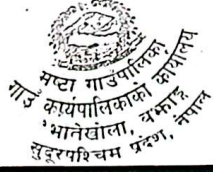 मष्टा गाउँपालिका
गाउँ कार्यपालिकाको कार्यालय
भानेखोला, बझाङ
सुदूरपश्चिम प्रदेश, नेपाल